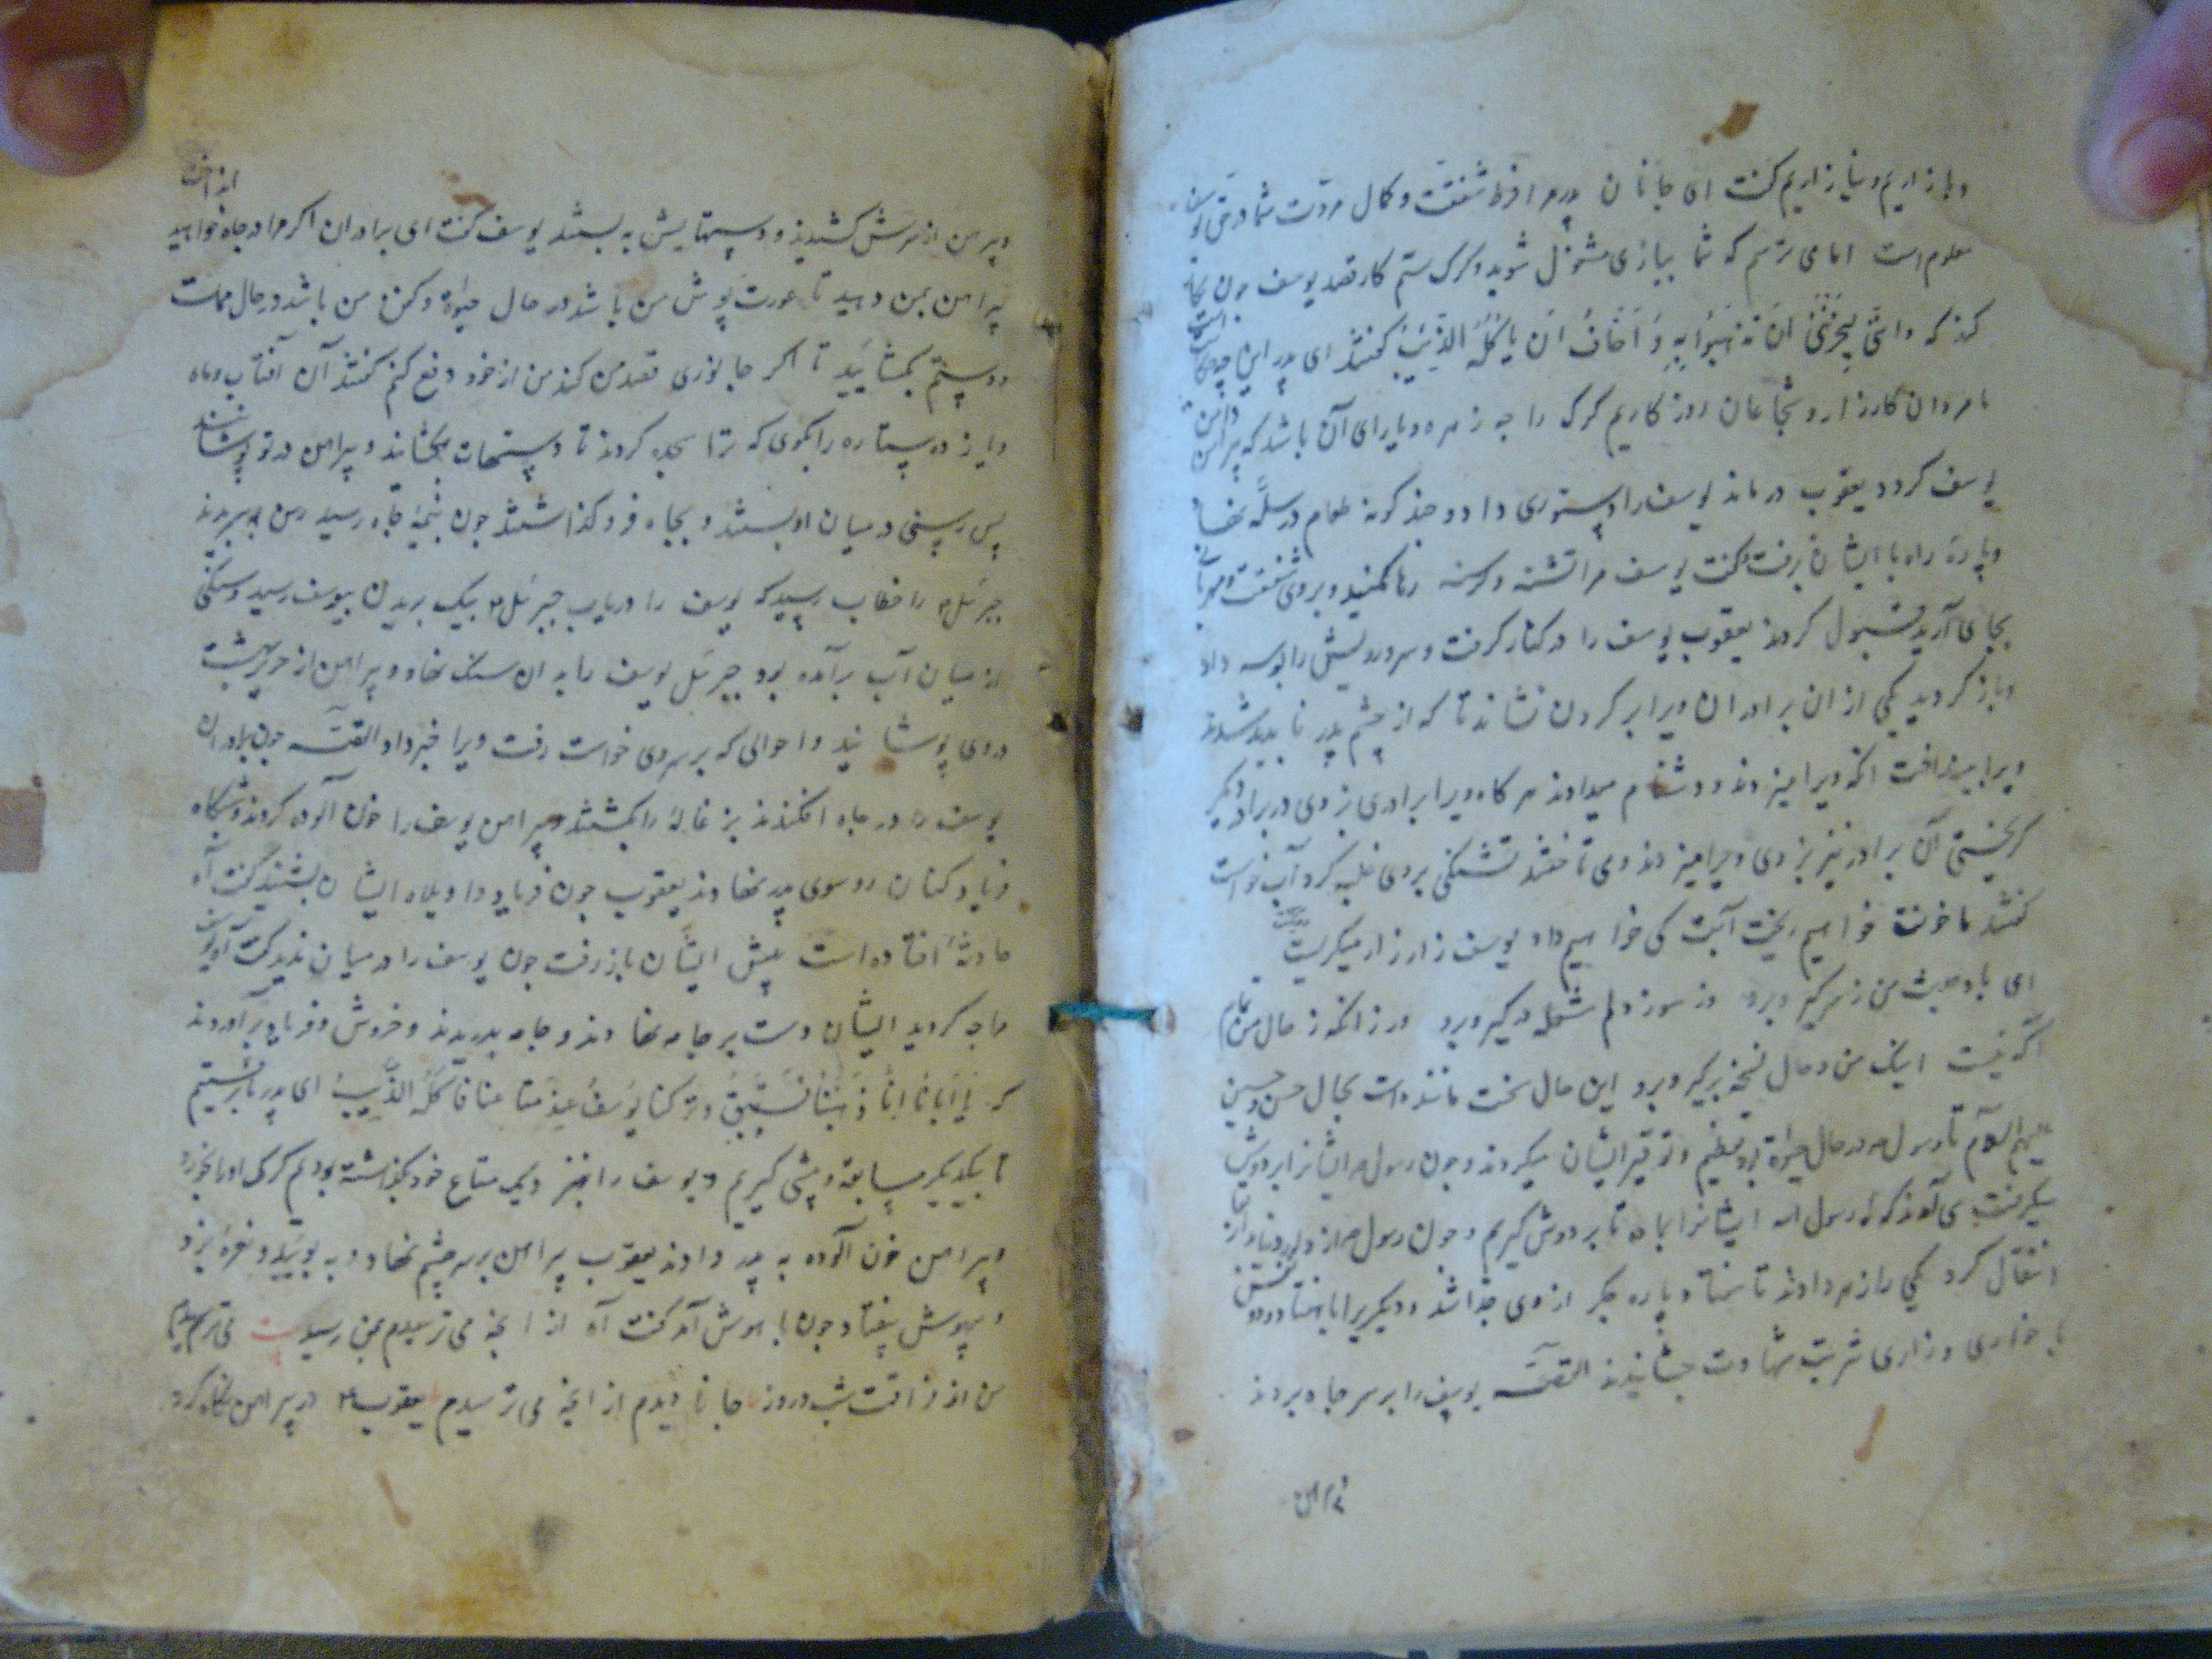 و باز اریم و نیازاریم گفت ای جانان پدر مرا فرط شفقت و کمال مروّت شما در حق یوسف
معلوم است اما می ترسم که شما ببازی مشغول شوید و کرک ستم کار قصد یوسف من
کند که وانی لیحزننی ان تذهبوا به و اخاف ان یاکله الذیب گفتند ای پدر این چه
ما مردان کارزار و شجاعان روزکاریم کرک را چه زهره و یارای آن باشد که پیرامن
یوسف کردد یعقوب درماند یوسف را دستوری داد و چند کونه طعام در سله نهاد
و پاره راه با ایشان برفت و گفت یوسف مرا تشنه و کرسنه رها مکنید و بروی شفقت و مهربانی
بجای آرید قبول کردند یعقوب یوسف را در کنار کرفت و سر و رویش را بوسه داد
و باز کردید یکی از ان برادران ویرا بر کردن نشاند تا که از چشم پدر ناپدید شدند
ویرا بینداخت انکه ویرا میزدند و دشنام میدادند هر کاه ویرا برادری بزدی در برادر دیکر
کریختی آن برادر نیز بزدی ویرا میزدند و می تاختند تشنکی بروی غلبه کرد آب خواست
گفتند ما خونت خواهیم ریخت آبت کی خواهیم داد یوسف زار زار میکریست
ای باد حدیث من زمن کیر و برو وز سوز دلم شعله در کیر و برو ورزانکه ز حال من تمام
آکه نیست اینک من و حال نسخه برکیر و برو این حال سخت مانده است بحال حسن و حسین
علیهم السلام تا رسول در حال حیوة بود تعظیم و توقیر ایشان میکردند و چون رسول ایشانرا بر دوش
میکرفت می آمدند که یا رسول الله ایشانرا بما ده تا بر دوش کیریم و چون رسول از دار دنیا
انتقال کرد یکی را زهر دادند تا هفتاد پاره جکر از وی جدا شد و دیکریرا با هفتاد و دو تن
با خواری و زاری شربت شهادت چشانیدند القصّه یوسف را بر سر چاه بردند
پیراهن
انداخت
و پیرهن از سرش کشیدند و دستهایش به بستند یوسف گفت ای برادران اکر مرا در چاه خواهید
پیراهن بمن دهید تا عورت پوش من باشد در حال حیوة و کفن من باشد در حال ممات
و دستم بکشایید تا اکر جانوری قصد من کند من از خود دفع کنم گفتند آن آفتاب و ماه
و یازده ستاره را بکوی که ترا سجده کردند تا دستهات بکشاند و پیراهن در تو پوشانند
پس رسنی در میان او بستند و بچاه فرو کذاشتند چون بنیمه چاه رسید رسن ببریدند
جبرئیل را خطاب رسید که یوسف را دریاب جبرئیل بیک پریدن بیوسف رسید و سنکی
از میان آب برآمده بود جبرئیل یوسف را به ان سنک نهاد و پیراهن از حریر بهشت
در وی پوشانید و احوالی که بر سر وی خواست رفت ویرا خبر داد القصّه چون برادران
یوسف را در چاه افکندند بزغاله را بکشتند و پیراهن یوسف را خون آلوده کردند و شبانکاه
فریاد کنان رو سوی پدر نهادند یعقوب چون فریاد و واویلاه ایشان بشنید گفت آه
حادثه افتاده است پیش ایشان باز رفت چون یوسف را در میان ندید گفت آه یوسف
را چه کردید ایشان دست بر جامه نهادند و جامه بدریدند و خروش و فریاد برآوردند
که یا ابانا انا ذهبنا نستبق و ترکنا یوسف عند متاعنا فاکله الذیب ای پدر ما رفتیم
تا بیکدیکر مسابقه و پیشی کیریم و یوسف را بنزدیک متاع خود بکذاشته بودیم کرک او را بخورد
و پیراهن خون آلوده به پدر دادند یعقوب پیراهن بر سر چشم نهاد و به بویید و نعره بزد
و بیهوش بیفتاد و چون با هوش آمد گفت آه از انچه می ترسیدم بمن رسید
من از فراقت شب و روز جانا دیدم از انچه می ترسیدم یعقوب در پیراهن نکاه کرد